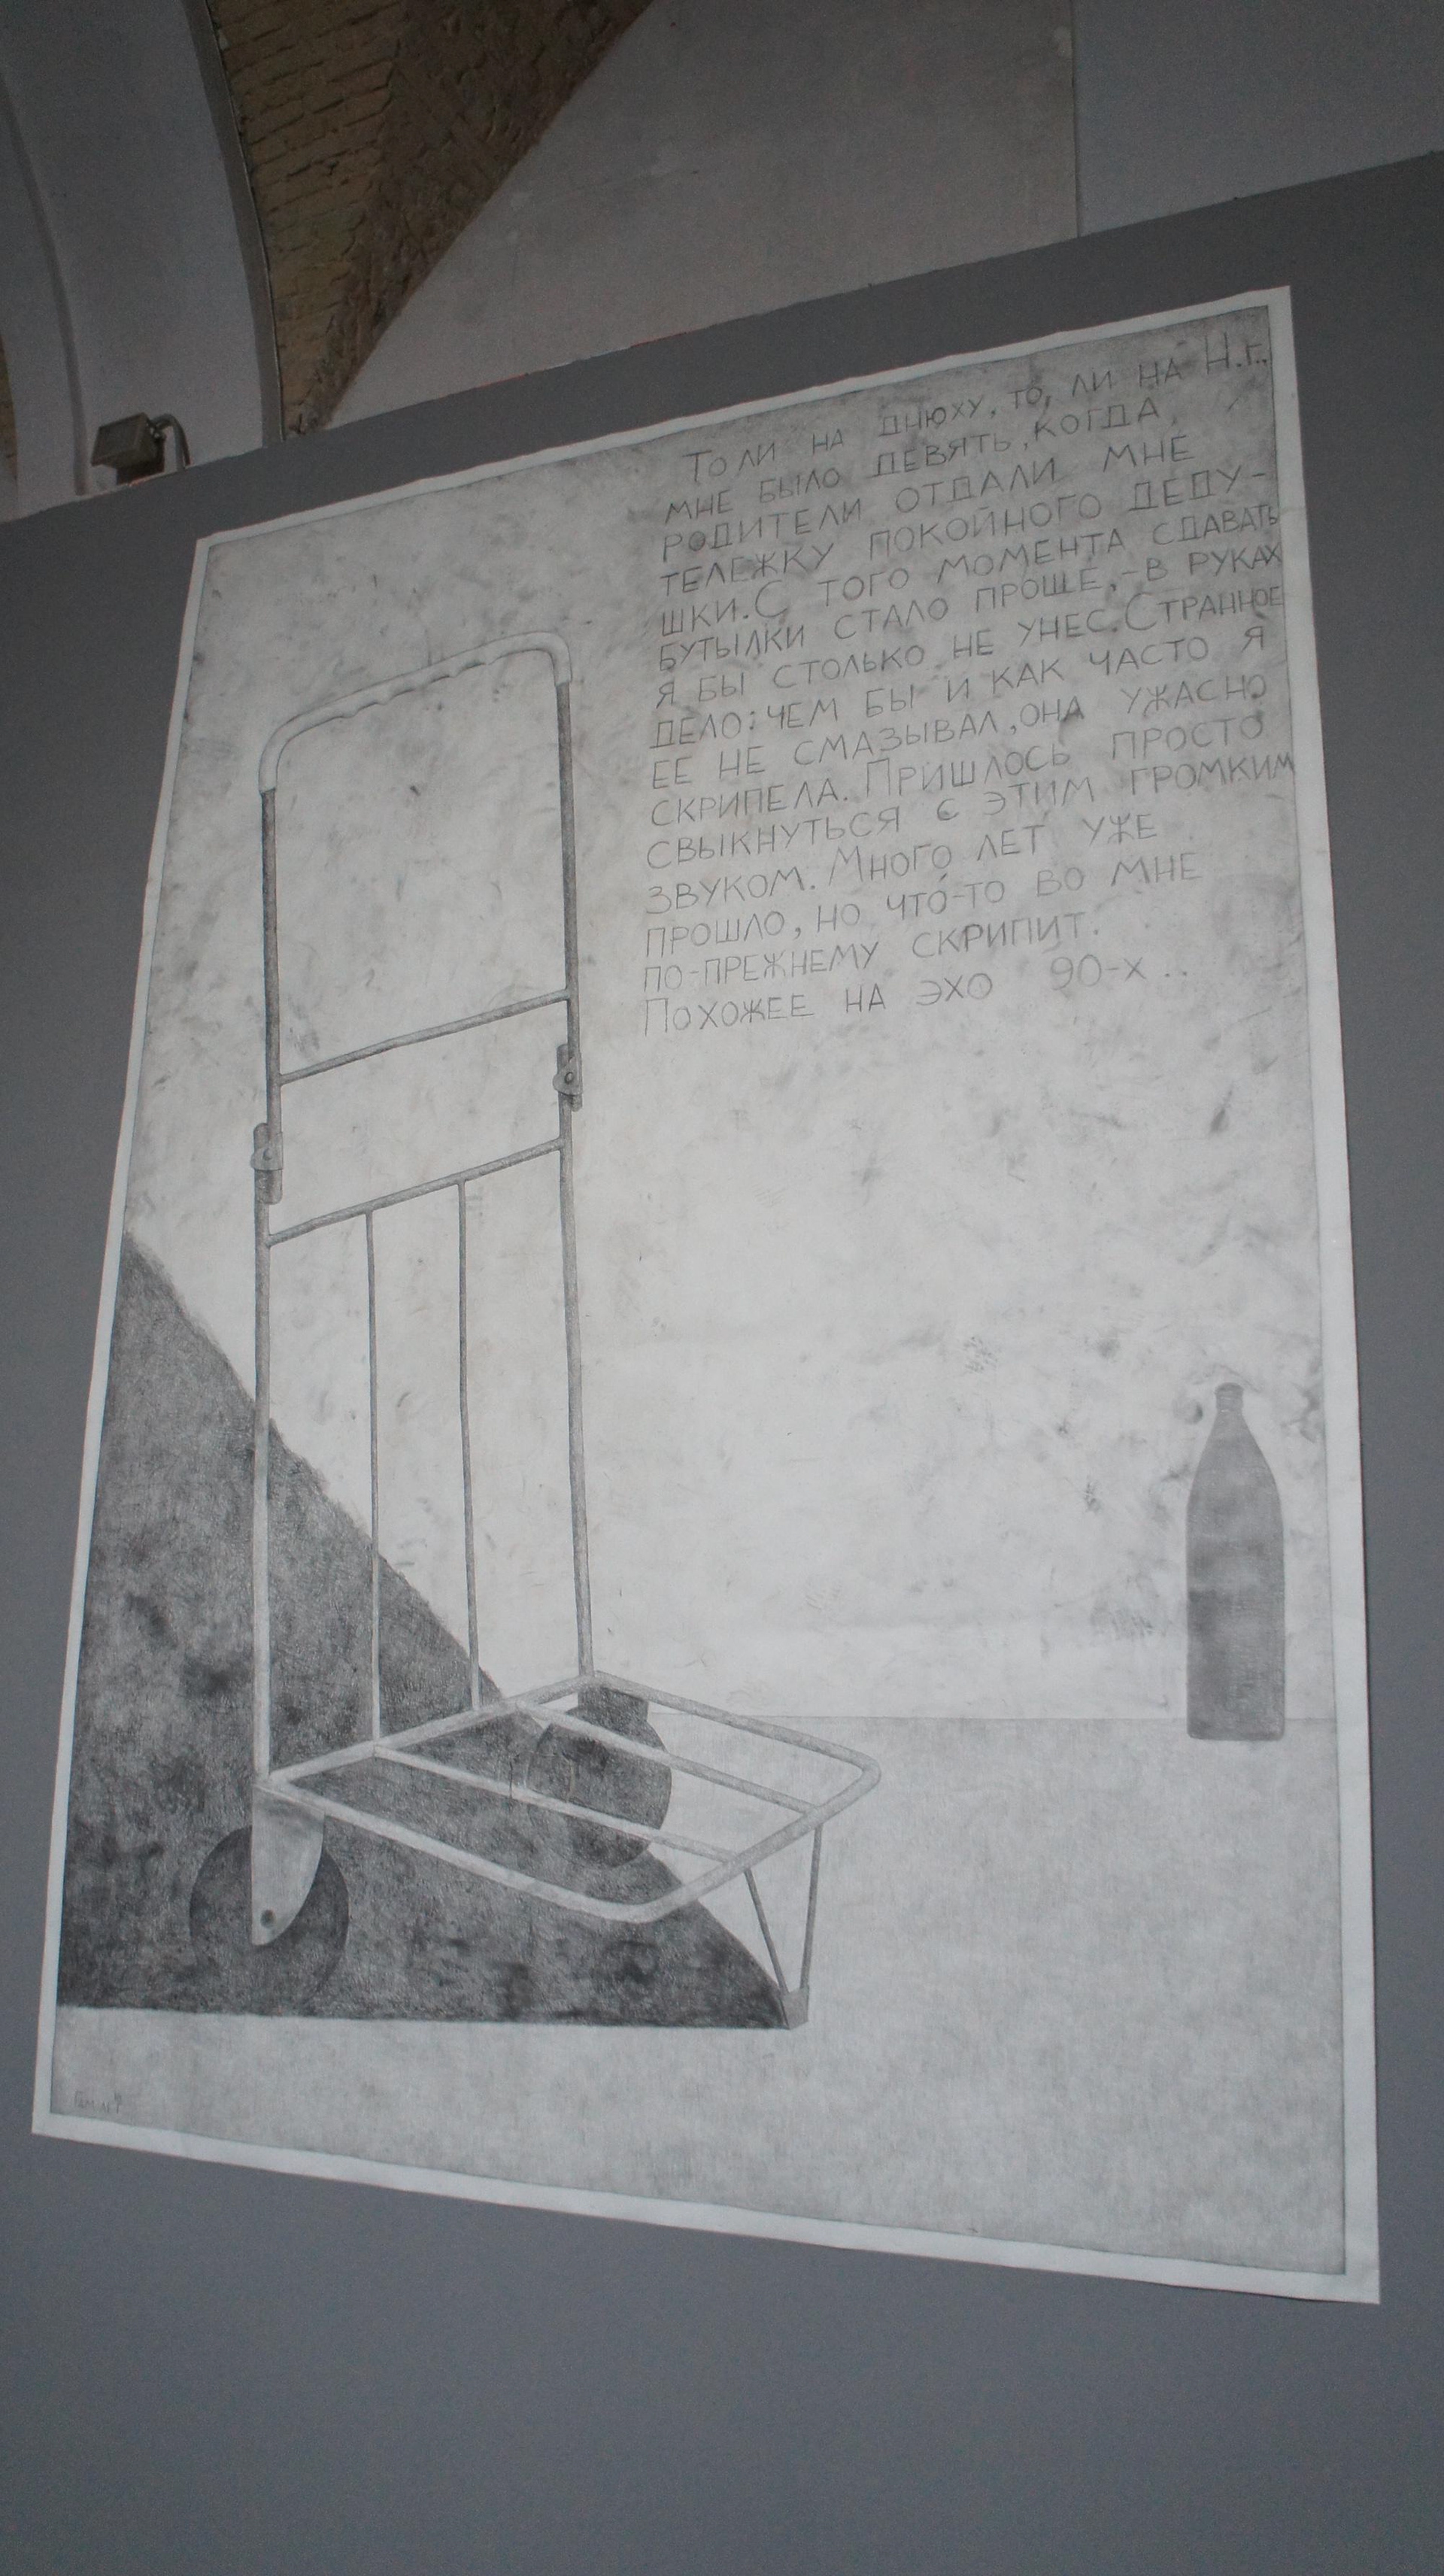 То ли на днюху, то, ли на Н.г.,
мне было девять, когда
родители отдали мне
тележку покойного деду-
шки. С того момента сдавать
бутылки стало проще, - в руках
я бы столько не унес. Странное
дело: чем бы и как часто я
ее не смазывал, она ужасно
скрипела. Пришлось просто
свыкнуться с этим громким
звуком. Много лет уже
прошло, но что́-то во мне
по-прежнему скрипит.
Похожее на эхо 90-х ..